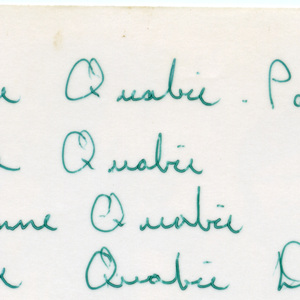 e Quabie. Po
Quabie
nne Quabie
Quabie D